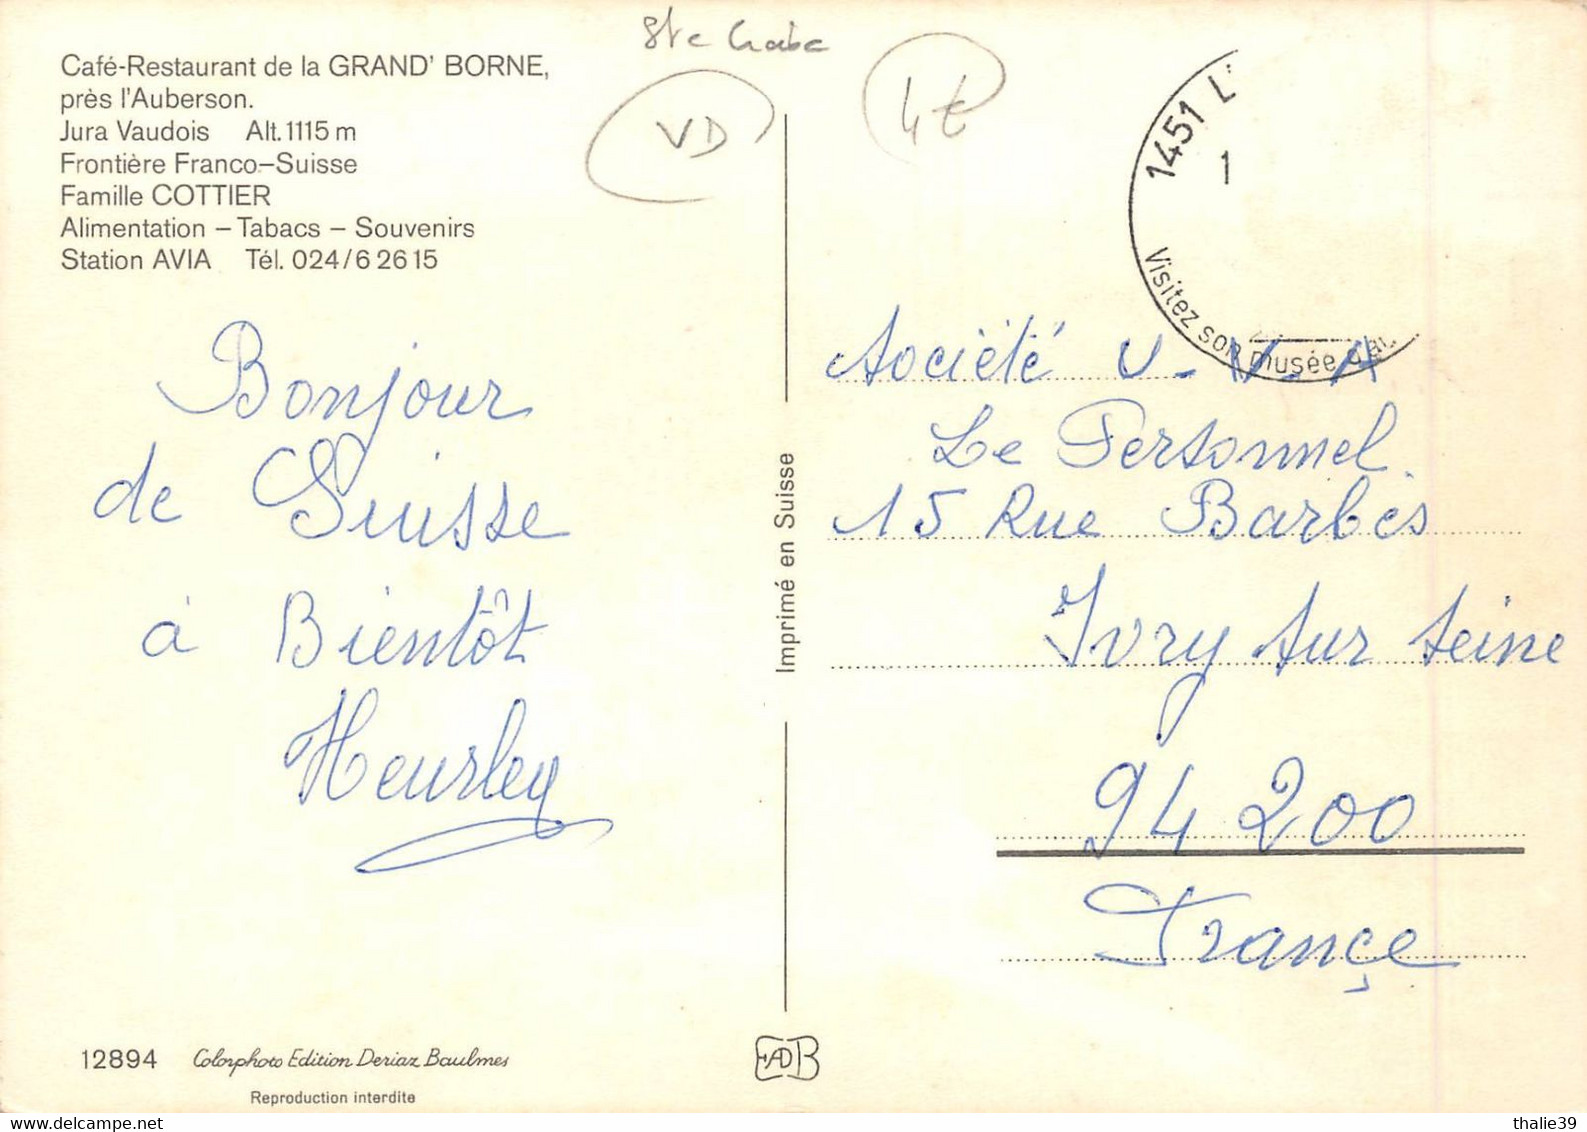 Café-Restaurant de la GRAND' BORNE,
près l'Auberson.
Jura Vaudois Alt. 1115 m
Frontière Franco-Suisse
Famille COTTIER
Alimentation – Tabacs – Souvenirs
Station AVIA Tél. 024/6 26 15
Ste Croix
VD
4€
1451 L'
1
Visitez son musée d'au
Bonjour
de Suisse
à Bientôt
Heurley
Imprimé en Suisse
Société U-V-A
Le Personnel.
15 Rue Barbès
Ivry sur seine
94 200
Françe
12894 Colorphoto Edition Deriaz Baulmes
Reproduction interdite
EADB
thalie39